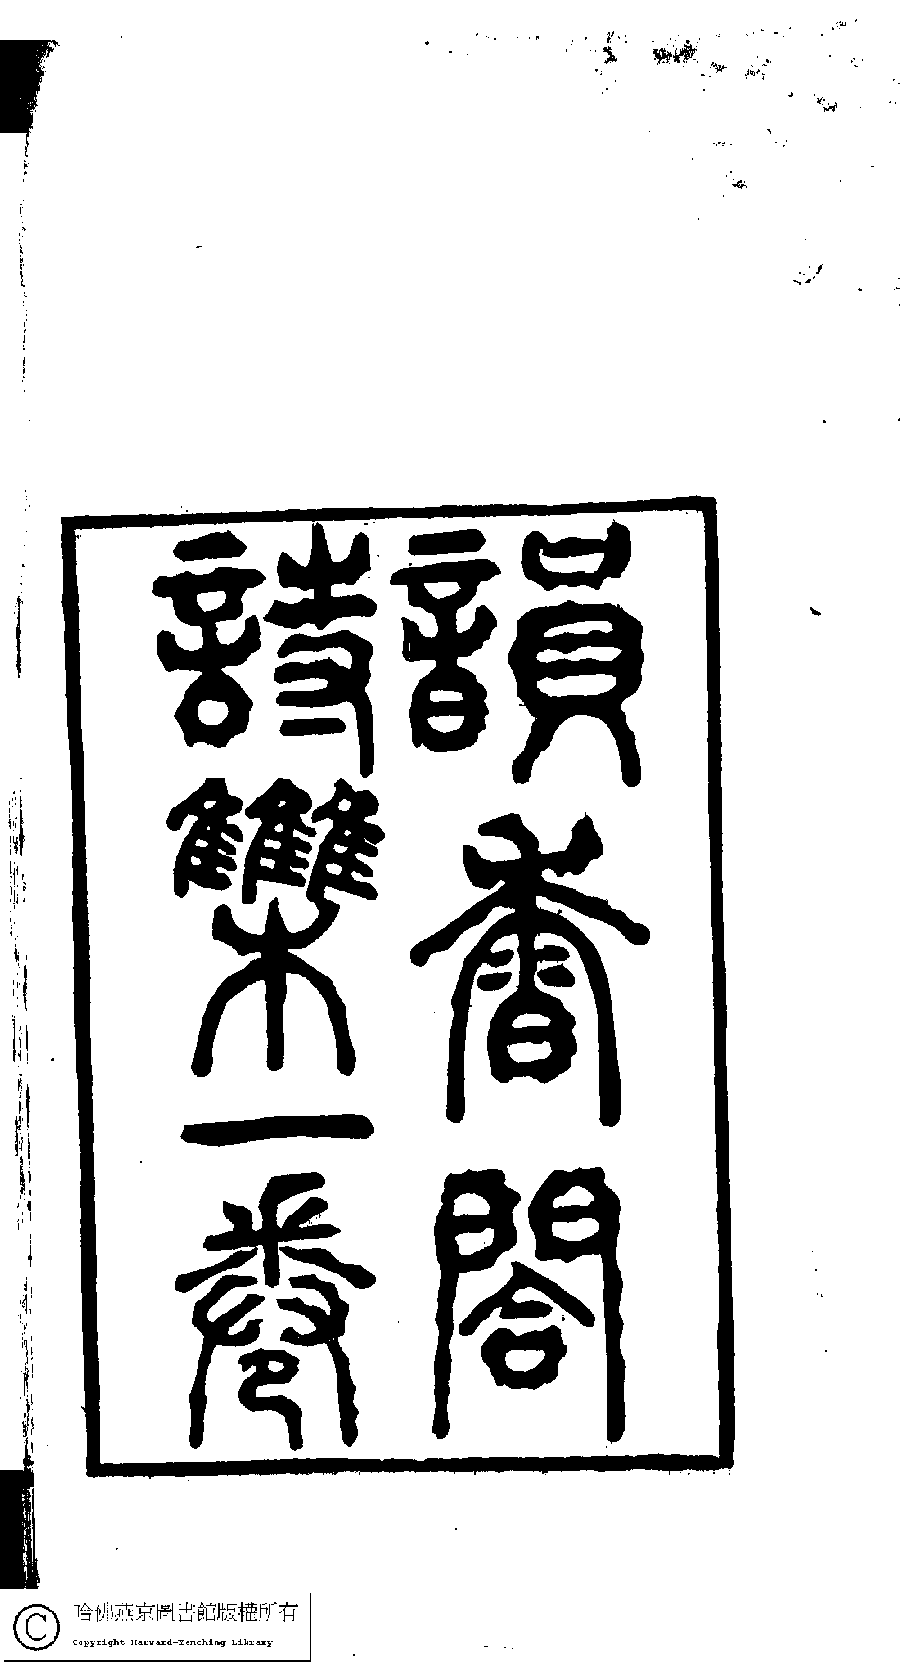 韻香閤
詩集一卷
哈佛燕京圖書館版權所有
Copyright Harvard-Yenching Library